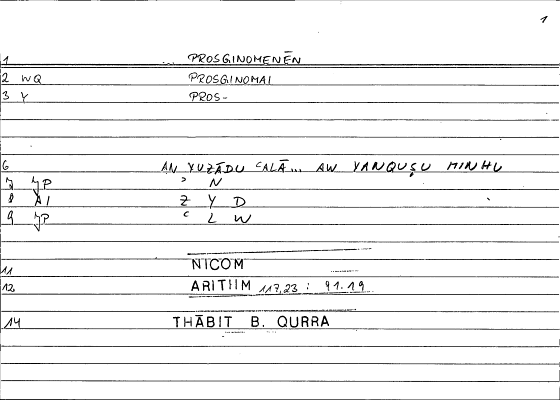 1
1 ... PROSGINOMENĒN
2 WQ PROSGINOMAI
3 Y PROS-
6 AN YUZĀDU ʿALĀ... AW YANQUṢU MINHU
7 JP ʾ N
8 AI Z Y D
9 JP ʿ L W
11 NICOM
12 ARITHM 117,23 : 91.19
14 THĀBIT B. QURRA